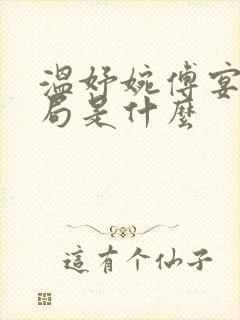 溫妤婉傅宴
局是什麼
這有个仙子